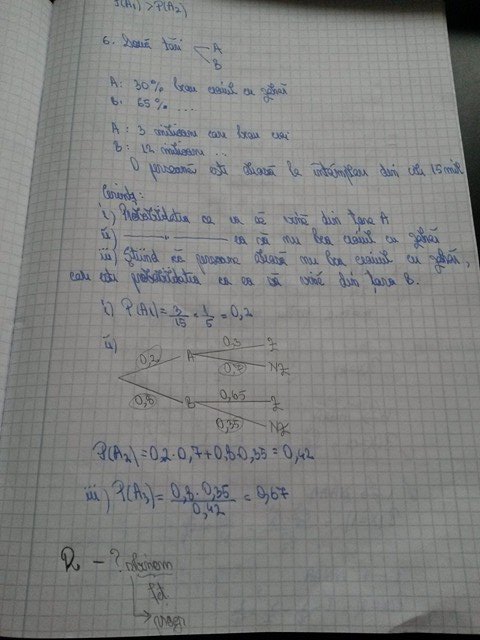 P(A₁) > P(A₂)
6. Două țări A
B
A: 30% beau ceaiul cu zahăr
B: 65% ...
A: 3 milioane care beau ceai
B: 12 milioane ...
O persoană este aleasă la întâmplare din cele 15 mil
Cerințe:
i) Probabilitatea ca ea să vină din țara A
ii) ——— " ——— ca să nu bea ceaiul cu zahăr
iii) Știind că persoana aleasă nu bea ceaiul cu zahăr,
care este probabilitatea ca ea să vină din țara B.
i) P(A₁) = 3/15 = 1/5 = 0,2
ii) 0,2 A 0,3 Z
0,7 NZ
0,8 B 0,65 Z
0,35 NZ
P(A₂) = 0,2 · 0,7 + 0,8 · 0,35 = 0,42
iii) P(A₃) = 0,8 · 0,35 / 0,42 = 0,67
R – ?
fd